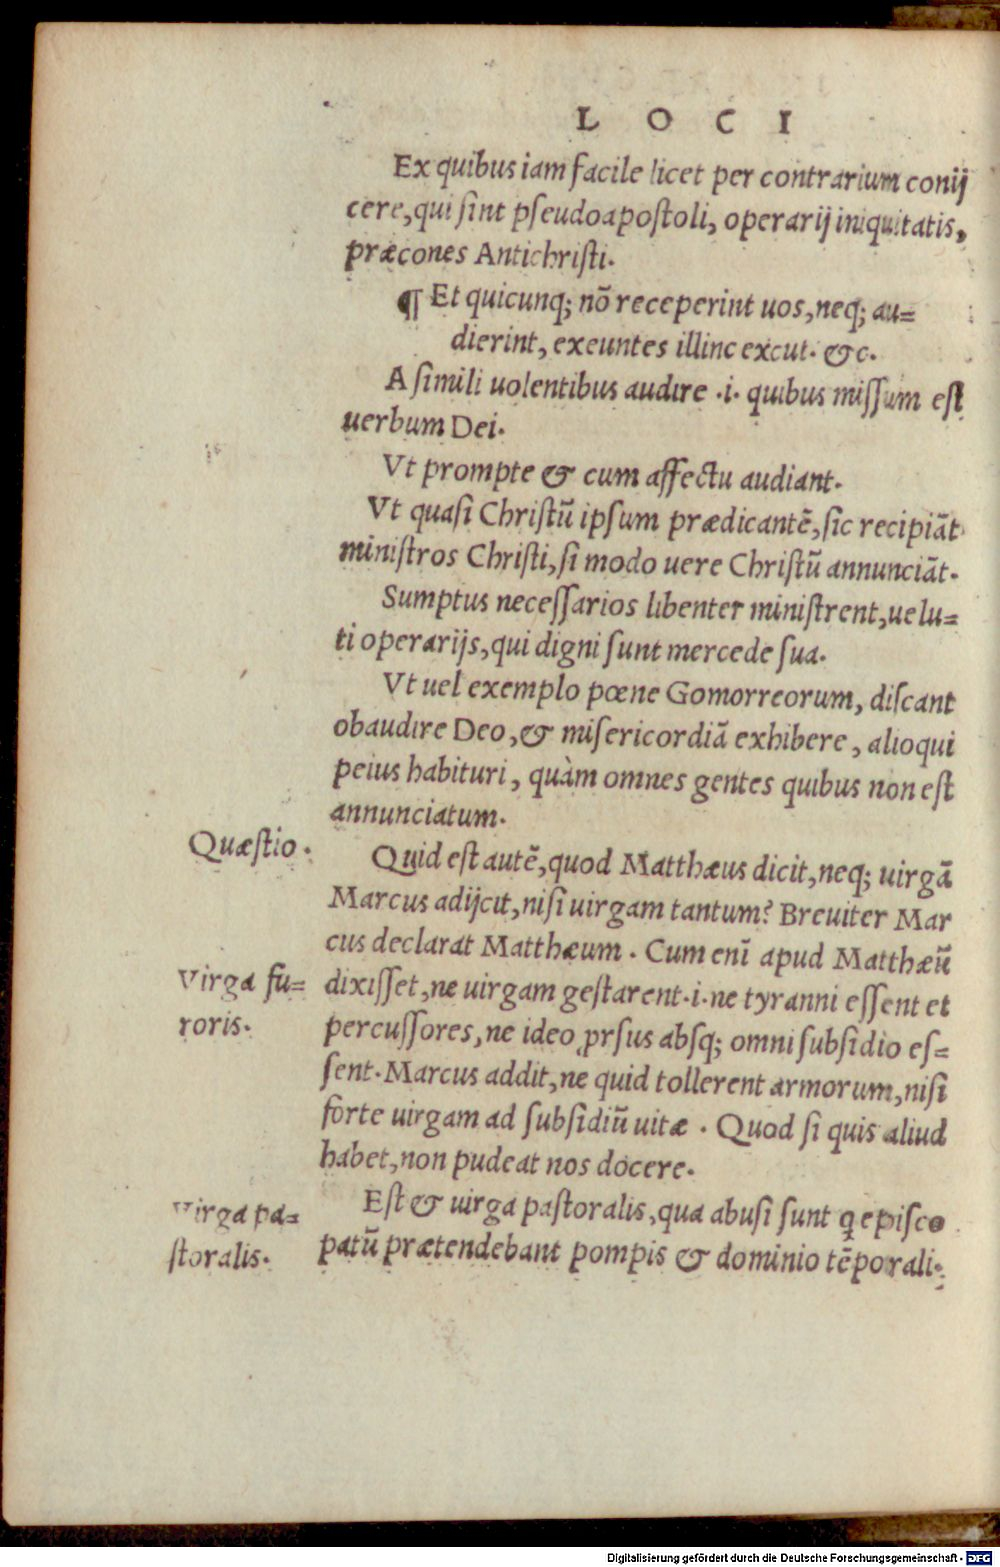 LOCI
Ex quibus iam facile licet per contrarium conij
cere, qui ſint pſeudoapoſtoli, operarij iniquitatis,
præcones Antichriſti.
¶ Et quicunq; nõ receperint uos, neq; au=
dierint, exeuntes illinc excut. &c.
A ſimili uolentibus audire .i. quibus miſſum eſt
uerbum Dei.
Vt prompte & cum affectu audiant.
Vt quaſi Chriſtũ ipſum prædicantẽ, ſic recipiãt
miniſtros Chriſti, ſi modo uere Chriſtũ annunciãt.
Sumptus neceſſarios libenter miniſtrent, uelu=
ti operarijs, qui digni ſunt mercede ſua.
Vt uel exemplo pœne Gomorreorum, diſcant
obaudire Deo, & miſericordiã exhibere, alioqui
peius habituri, quàm omnes gentes quibus non eſt
annunciatum.
Quæſtio.
Quid eſt autẽ, quod Matthæus dicit, neq; uirgã
Marcus adijcit, niſi uirgam tantum? Breuiter Mar
cus declarat Matthæum. Cum enĩ apud Matthæũ
Virga fu=
roris.
dixiſſet, ne uirgam geſtarent .i. ne tyranni eſſent et
percuſſores, ne ideo ꝓrſus abſq; omni ſubſidio eſ=
ſent. Marcus addit, ne quid tollerent armorum, niſi
forte uirgam ad ſubſidiũ uitæ. Quod ſi quis aliud
habet, non pudeat nos docere.
Virga pa=
ſtoralis.
Eſt & uirga paſtoralis, qua abuſi ſunt ꝗ epiſco
patũ prætendebant pompis & dominio tẽporali.
Digitalisierung gefördert durch die Deutsche Forschungsgemeinschaft - DFG